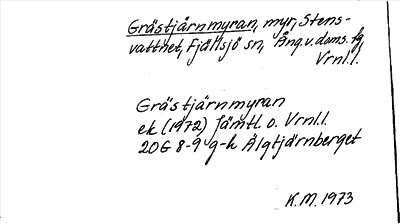 Grästjärnmyran, myr, Stens-
vattnet, Fjällsjö sn, Ång. v. doms. fg,
Vrnl. l.
Grästjärnmyran
ek (1972) Jämtl. o. Vrnl. l.
20G 8-9 g-h Älgtjärnberget
K.M. 1973